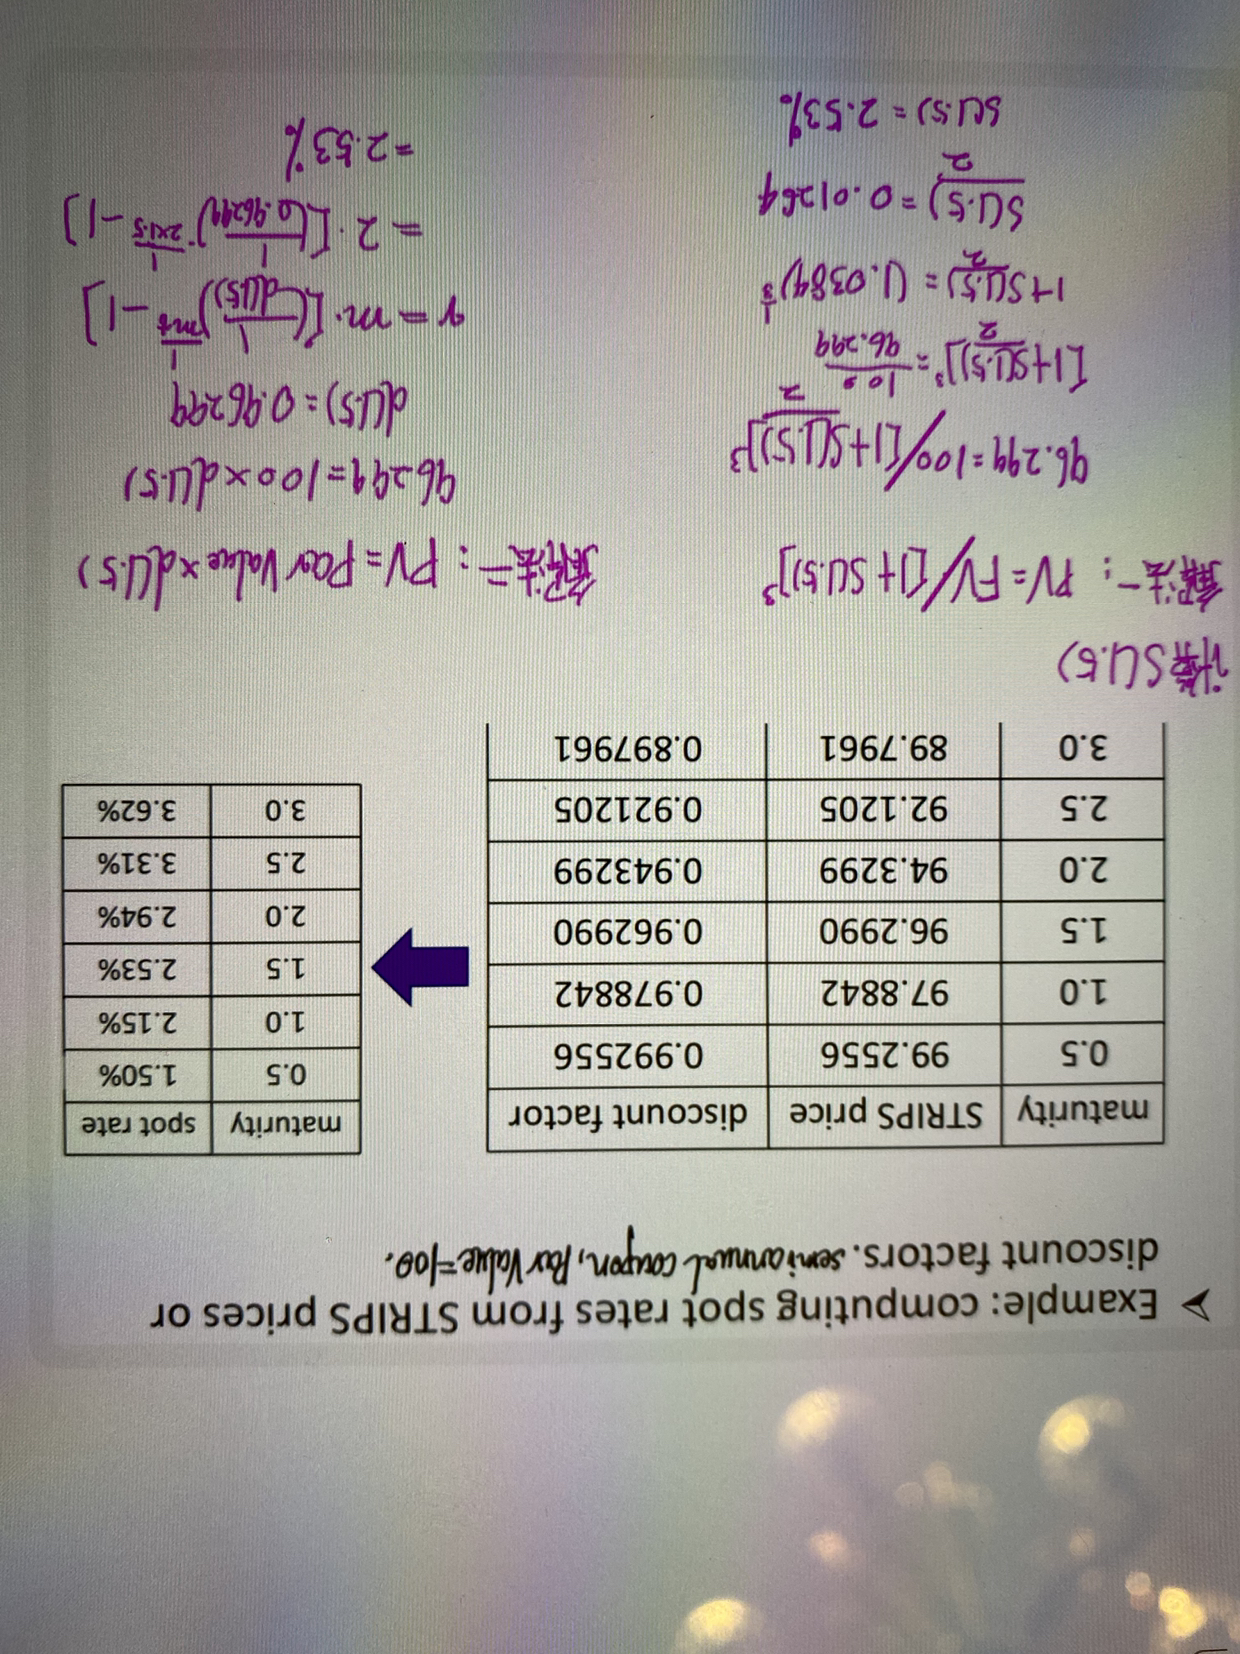 ➢ Example: computing spot rates from STRIPS prices or
discount factors. semiannual coupon, Par Value=100.
maturity STRIPS price discount factor
0.5 99.2556 0.992556
1.0 97.8842 0.978842
1.5 96.2990 0.962990
2.0 94.3299 0.943299
2.5 92.1205 0.921205
3.0 89.7961 0.897961
maturity spot rate
0.5 1.50%
1.0 2.15%
1.5 2.53%
2.0 2.94%
2.5 3.31%
3.0 3.62%
计算S(1.5)
解法一: PV=FV/[1+S(1.5)]³
96.299=100/[1+S(1.5)/2]³
[1+S(1.5)/2]³=100/96.299
1+S(1.5)/2=(1.0384)^(1/3)
S(1.5)/2=0.01264
S(1.5)=2.53%
解法二: PV=Par Value×d(1.5)
96.299=100×d(1.5)
d(1.5)=0.96299
r=m·[(1/d(1.5))^(1/mt)-1]
=2·[(1/0.96299)^(1/2×1.5)-1]
=2.53%